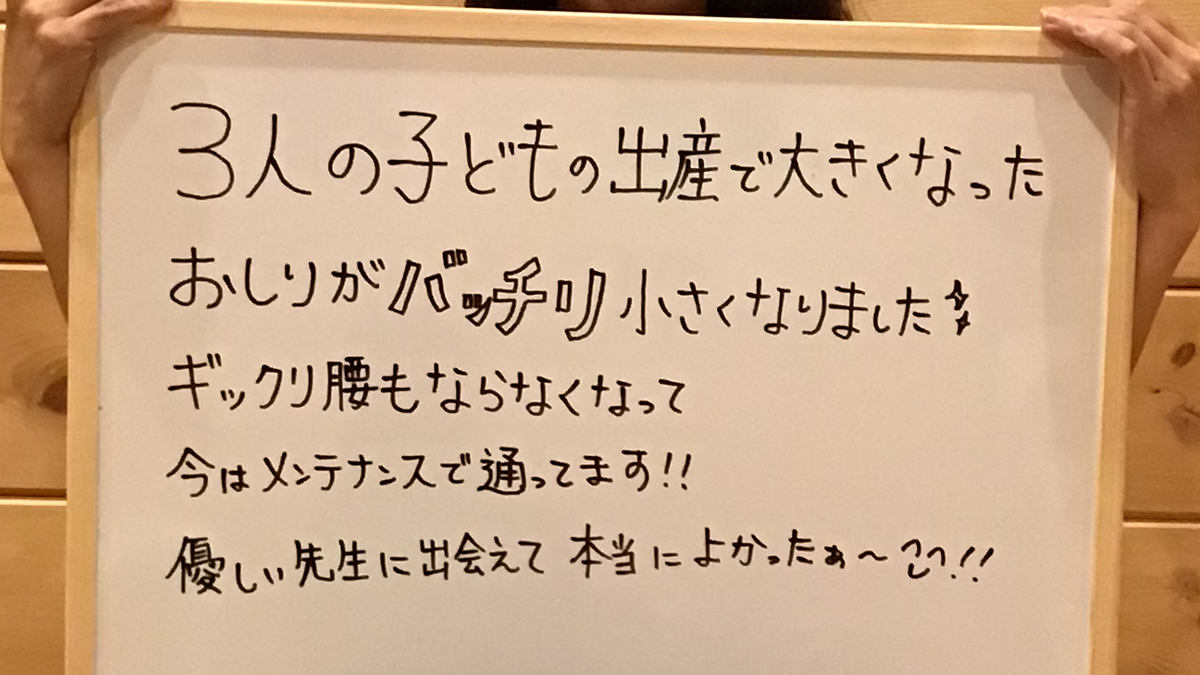 3人の子どもの出産で大きくなった
おしりがバッチリ小さくなりました
ギックリ腰もならなくなって
今はメンテナンスで通ってます!!
優しい先生に出会えて 本当によかったぁ〜!!